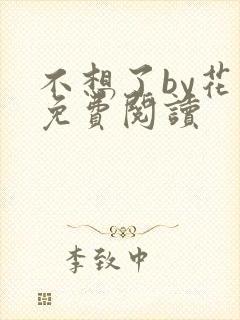 不想了by花
免費閱讀
李致中